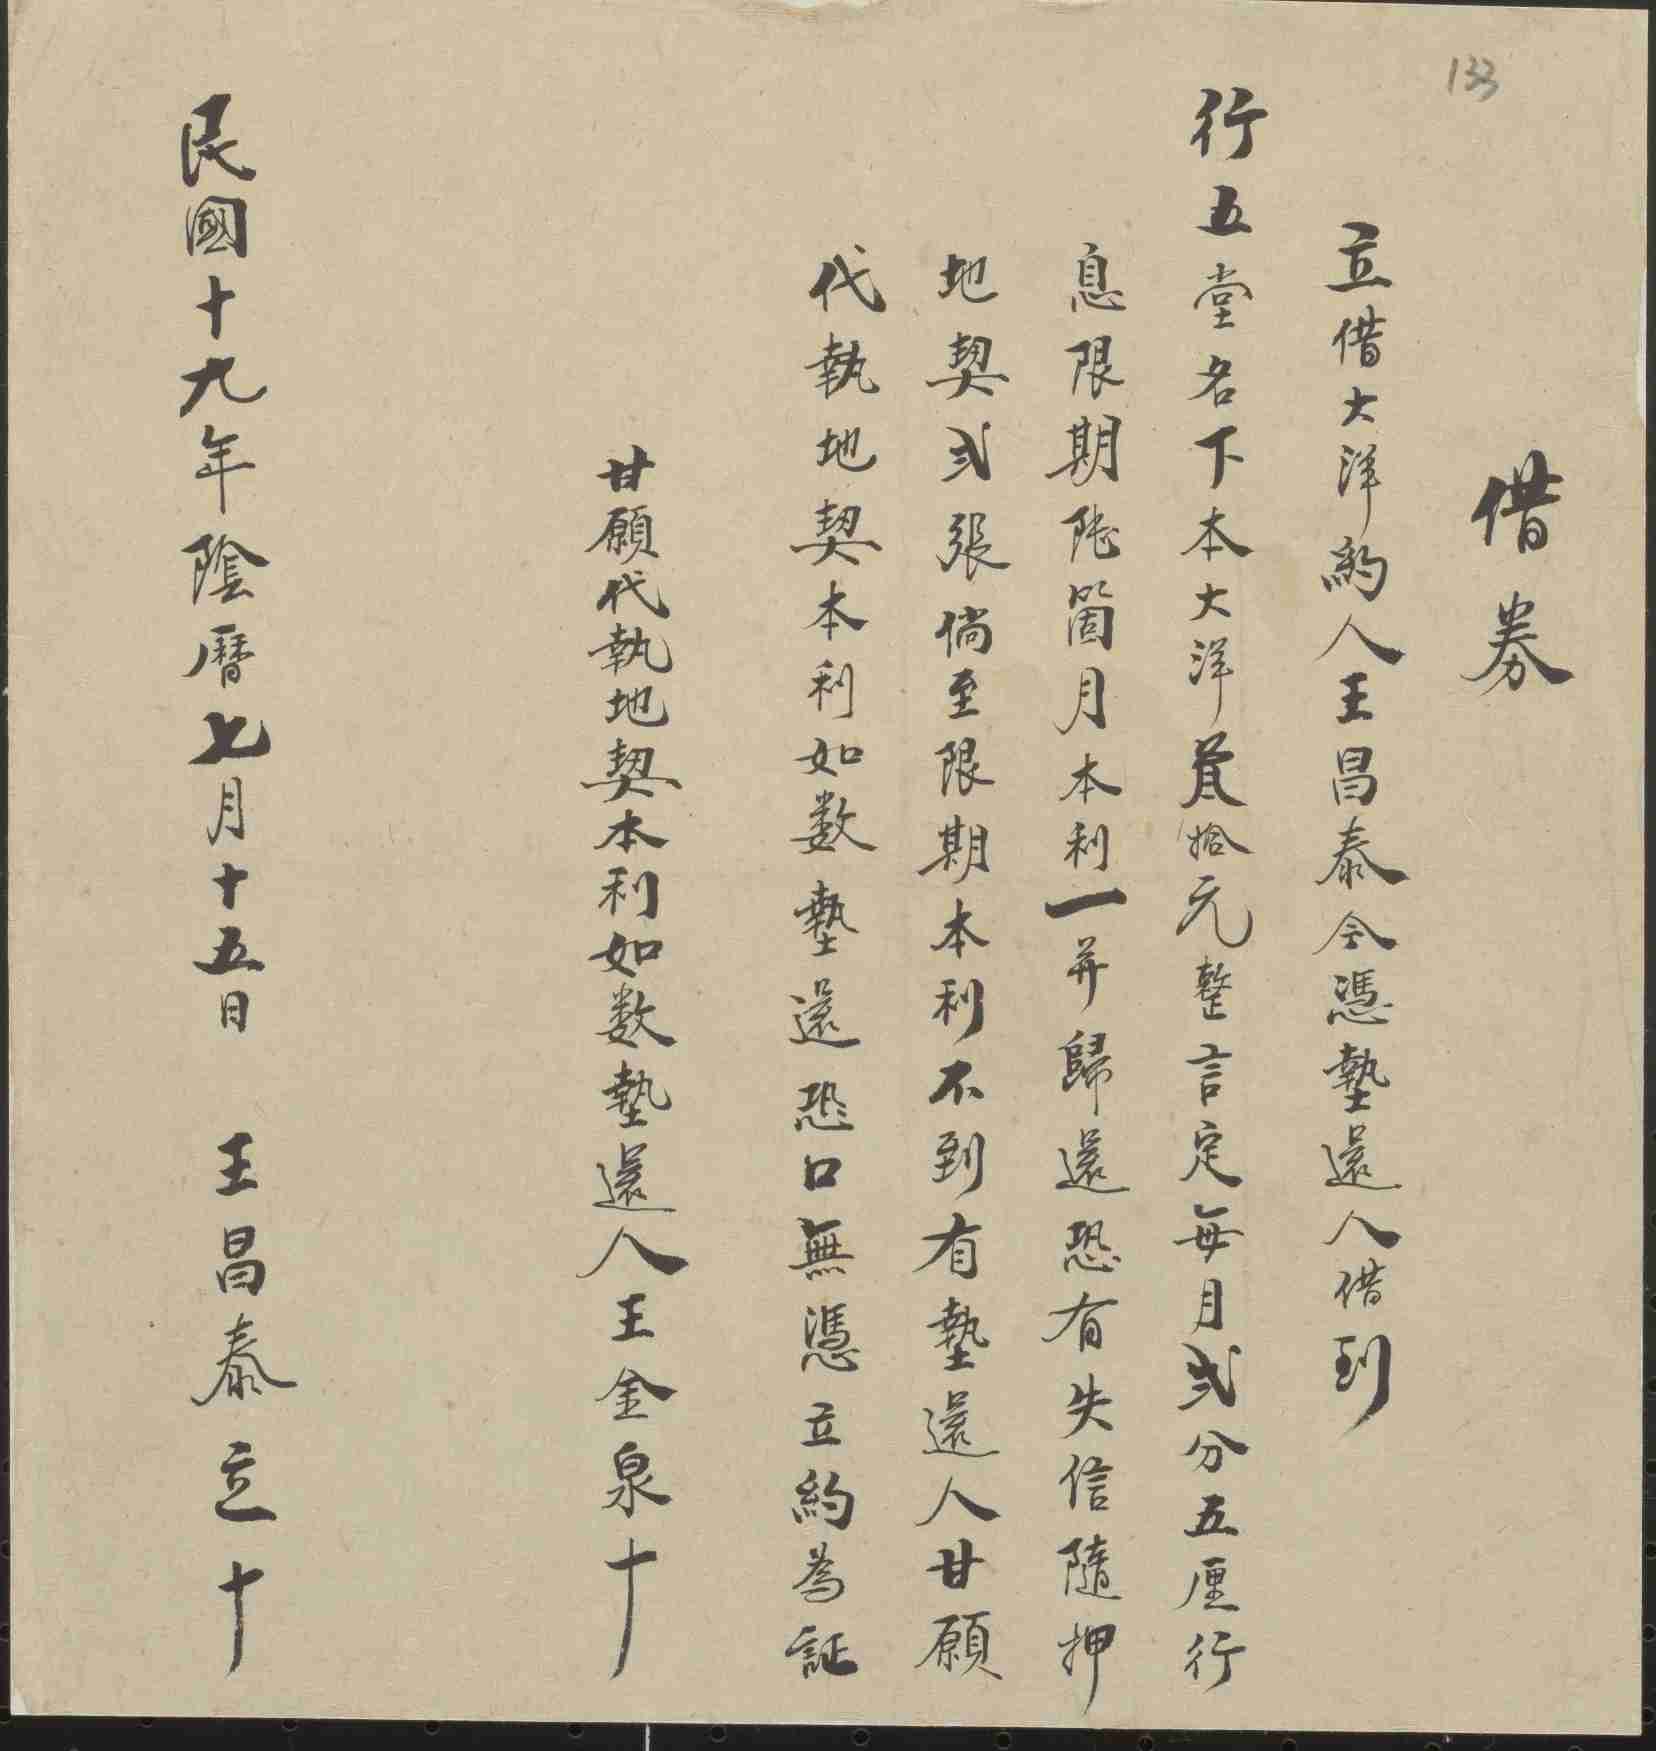 133
借券
立借大洋約人王昌泰今憑墊還人借到
行五堂名下本大洋貳拾元整言定每月弍分五厘行
息限期陸箇月本利一并歸還恐有失信隨押
地契弍張倘至限期本利不到有墊還人甘願
代執地契本利如数墊還恐口無憑立約為証
甘願代執地契本利如数墊還人王金泉十
民國十九年陰曆七月十五日 王昌泰立十